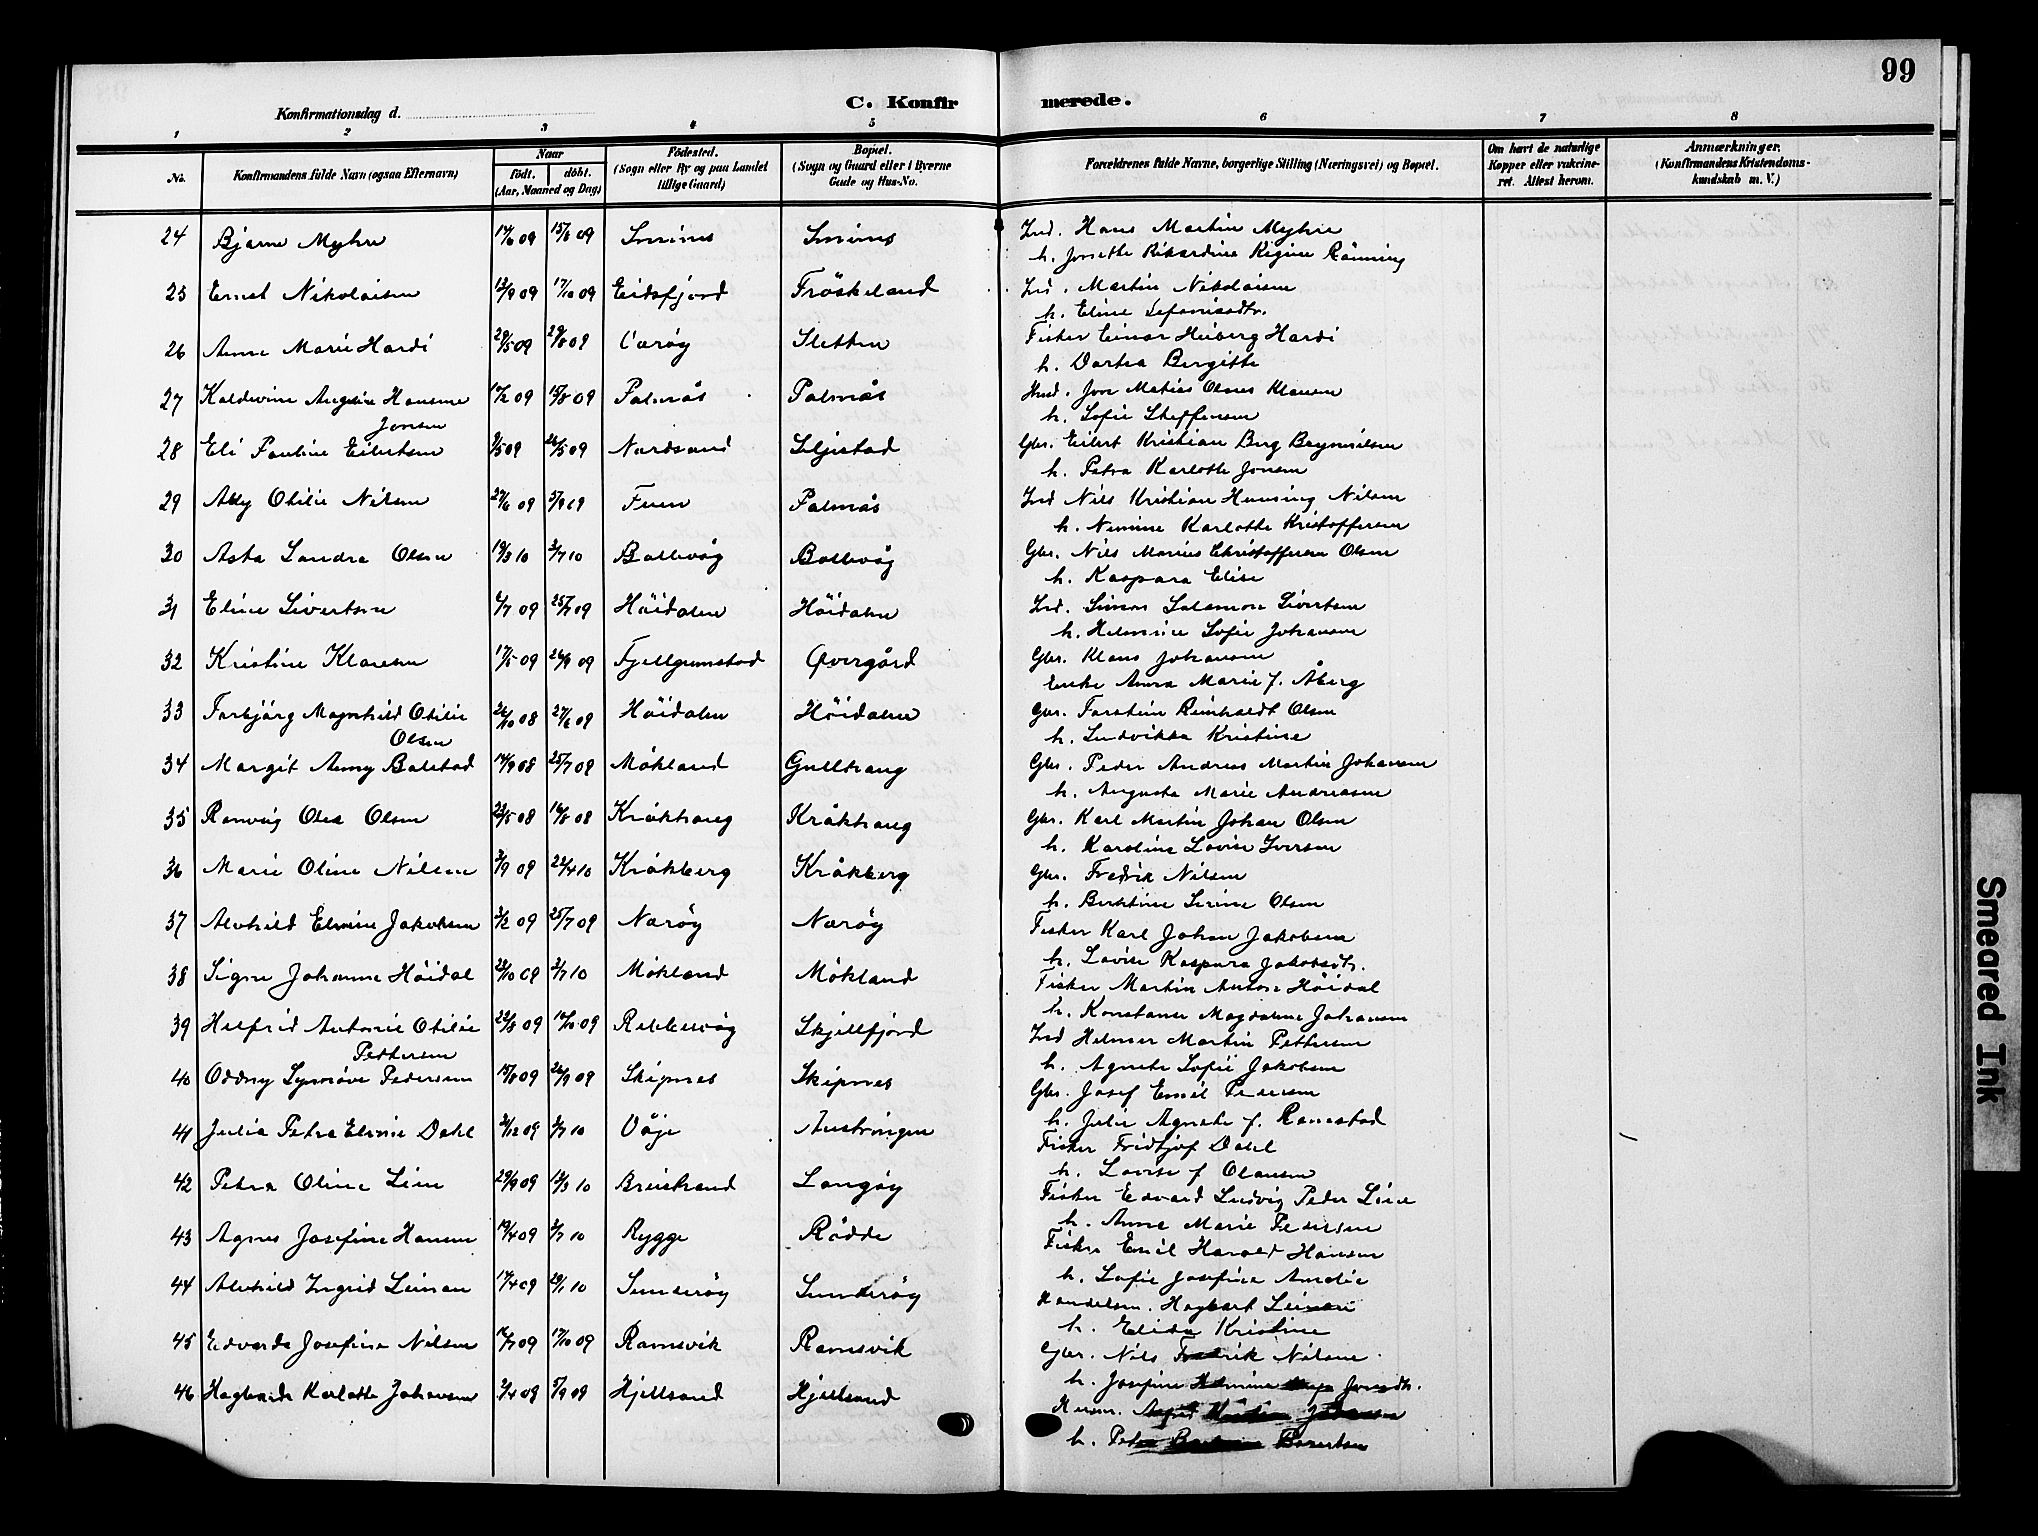 99
C. Konfirmerede.
Konfirmationsdag d.
1 2 3 4 5 6 7 8
No. Konfirmandens fulde Navn (ogsaa Efternavn) Naar födt. döbt. (Aar, Maaned og Dag) Födested. (Sogn eller By og paa Landet tillige Gaard) Bopæl. (Sogn og Gaard eller i Byerne Gade og Hus-No. Forældrenes fulde Navne, borgerlige Stilling (Næringsvei) og Bopæl. Om havt de naturlige Kopper eller vaccineret. Attest herom. Anmærkninger. (Konfirmandens Kristendomskundskab m. V.)
24 Bjarne Myhre 09 15/8 09 Smines Smines Ind. Hans Martin Myhre
h. Jonette Rikardine Regine Rönning
25 Ernst Nikolaisen 12/9 09 17/10 09 Eidsfjord Fröskeland Ind. Martin Nikolaisen
h. Eline
26 Anna Marie Hardi 29/5 09 29/8 09 Sletten Fisker Einar Heiberg Hardi
h. Dortea Bergitte
27 Angelie Hansine Jonsen 09 15/8 09 Palmås Palmås Jon Matias Olaus Klausen
h. Sofie Steffensen
28 Eli Pauline Eilertsen /5 09 26/5 09 Nordsand Siljestad Gbr. Eilert Kristian Berg Brynnilsen
h. Petra Karlotte Jonsen
29 Otilie Nilsen 27/6 09 5/9 09 Palmås Ind Nils Kristian Henning Nilsen
h. Karlotte Kristoffersen
30 Asta Sandra Olsen 19/3 10 3/7 10 Ballevåg Ballevåg Gbr. Nils Marius Christoffersen Olsen
h. Kaspara Elise
31 Eline Sivertsen 6/7 09 25/7 09 Höidalen Höidalen Ind. Simon Salamon Sivertsen
h. Helmine Sofie Johansen
32 Kristine Klausen 17/5 09 26/9 09 Övergård Gbr. Klaus Johansen
Enke Anna Marie f. Åberg
33 Torbjörg Magnhild Otilie Olsen 26/10 08 27/6 09 Höidalen Höidalen Gbr. Torstein Reinholdt Olsen
h. Ludvikka Kristine
34 Margit Anny Balstad 14/9 08 25/7 09 Mökland Gullhaug Gbr. Peder Andreas Martin Johansen
h. Augusta Marie Andreasen
35 Ranveig Olea Olsen 23/5 08 16/8 08 Kråkhaug Kråkhaug Gbr. Karl Martin Johan Olsen
h. Karoline Lovise Iversen
36 Marie Oline Nilsen 3/9 09 24/4 10 Kråkberg Kråkberg Gbr. Fredrik Nilsen
h. Berntine Serine Olsen
37 Alvhild Elvine Jakobsen 09 25/7 09 Naröy Naröy Fisker Karl Johan Jakobsen
h. Lovise Kaspara Jakobsdtr.
38 Signe Johanne Höidal 28/10 09 3/7 10 Mökland Mökland Fisker Martin Anton Höidal
h. Konstanse Magdalene Johansen
39 Helfrid Antonie Otilie Pettersen 22/8 09 10/10 09 Skjellfjord Ind Helmer Martin Pettersen
h. Agnete Sofie Jakobsen
40 Oddny Synnöve Pedersen 15/8 09 26/9 09 Skipnes Skipnes Gbr. Josef Emil Pedersen
h. Julie Agnete f. Ramstad
41 Julia Petra Elvine Dahl /12 09 3/7 10 Våje Austvingen Fisker Fridtjof Dahl
h. Lovise f Olausen
42 Petra Oline Lein 29/9 09 13/3 10 Breistrand Langöy Fisker Edvard Ludvig Peder Lein
h. Anna Marie Pedersen
43 Agnes Josefine Hansen 19/4 09 3/7 10 Rygge Rödde Fisker Emil Harald Hansen
h. Sofie Josefine Amalie
44 Alvhild Ingrid Leinan 17/4 09 29/1 10 Sunderöy Sunderöy Handelsm. Hagbart Leinan
h. Elida Kristine
45 Edvarda Josefine Nilsen 16/7 09 17/10 09 Ramsvik Ramsvik Gbr. Nils Fredrik Nilsen
h. Josefine Jonsdtr.
46 Karlotte Johansen 2/4 09 5/9 09 Hjellsand Hjellsand Johansen
h. Petra
Smeared Ink